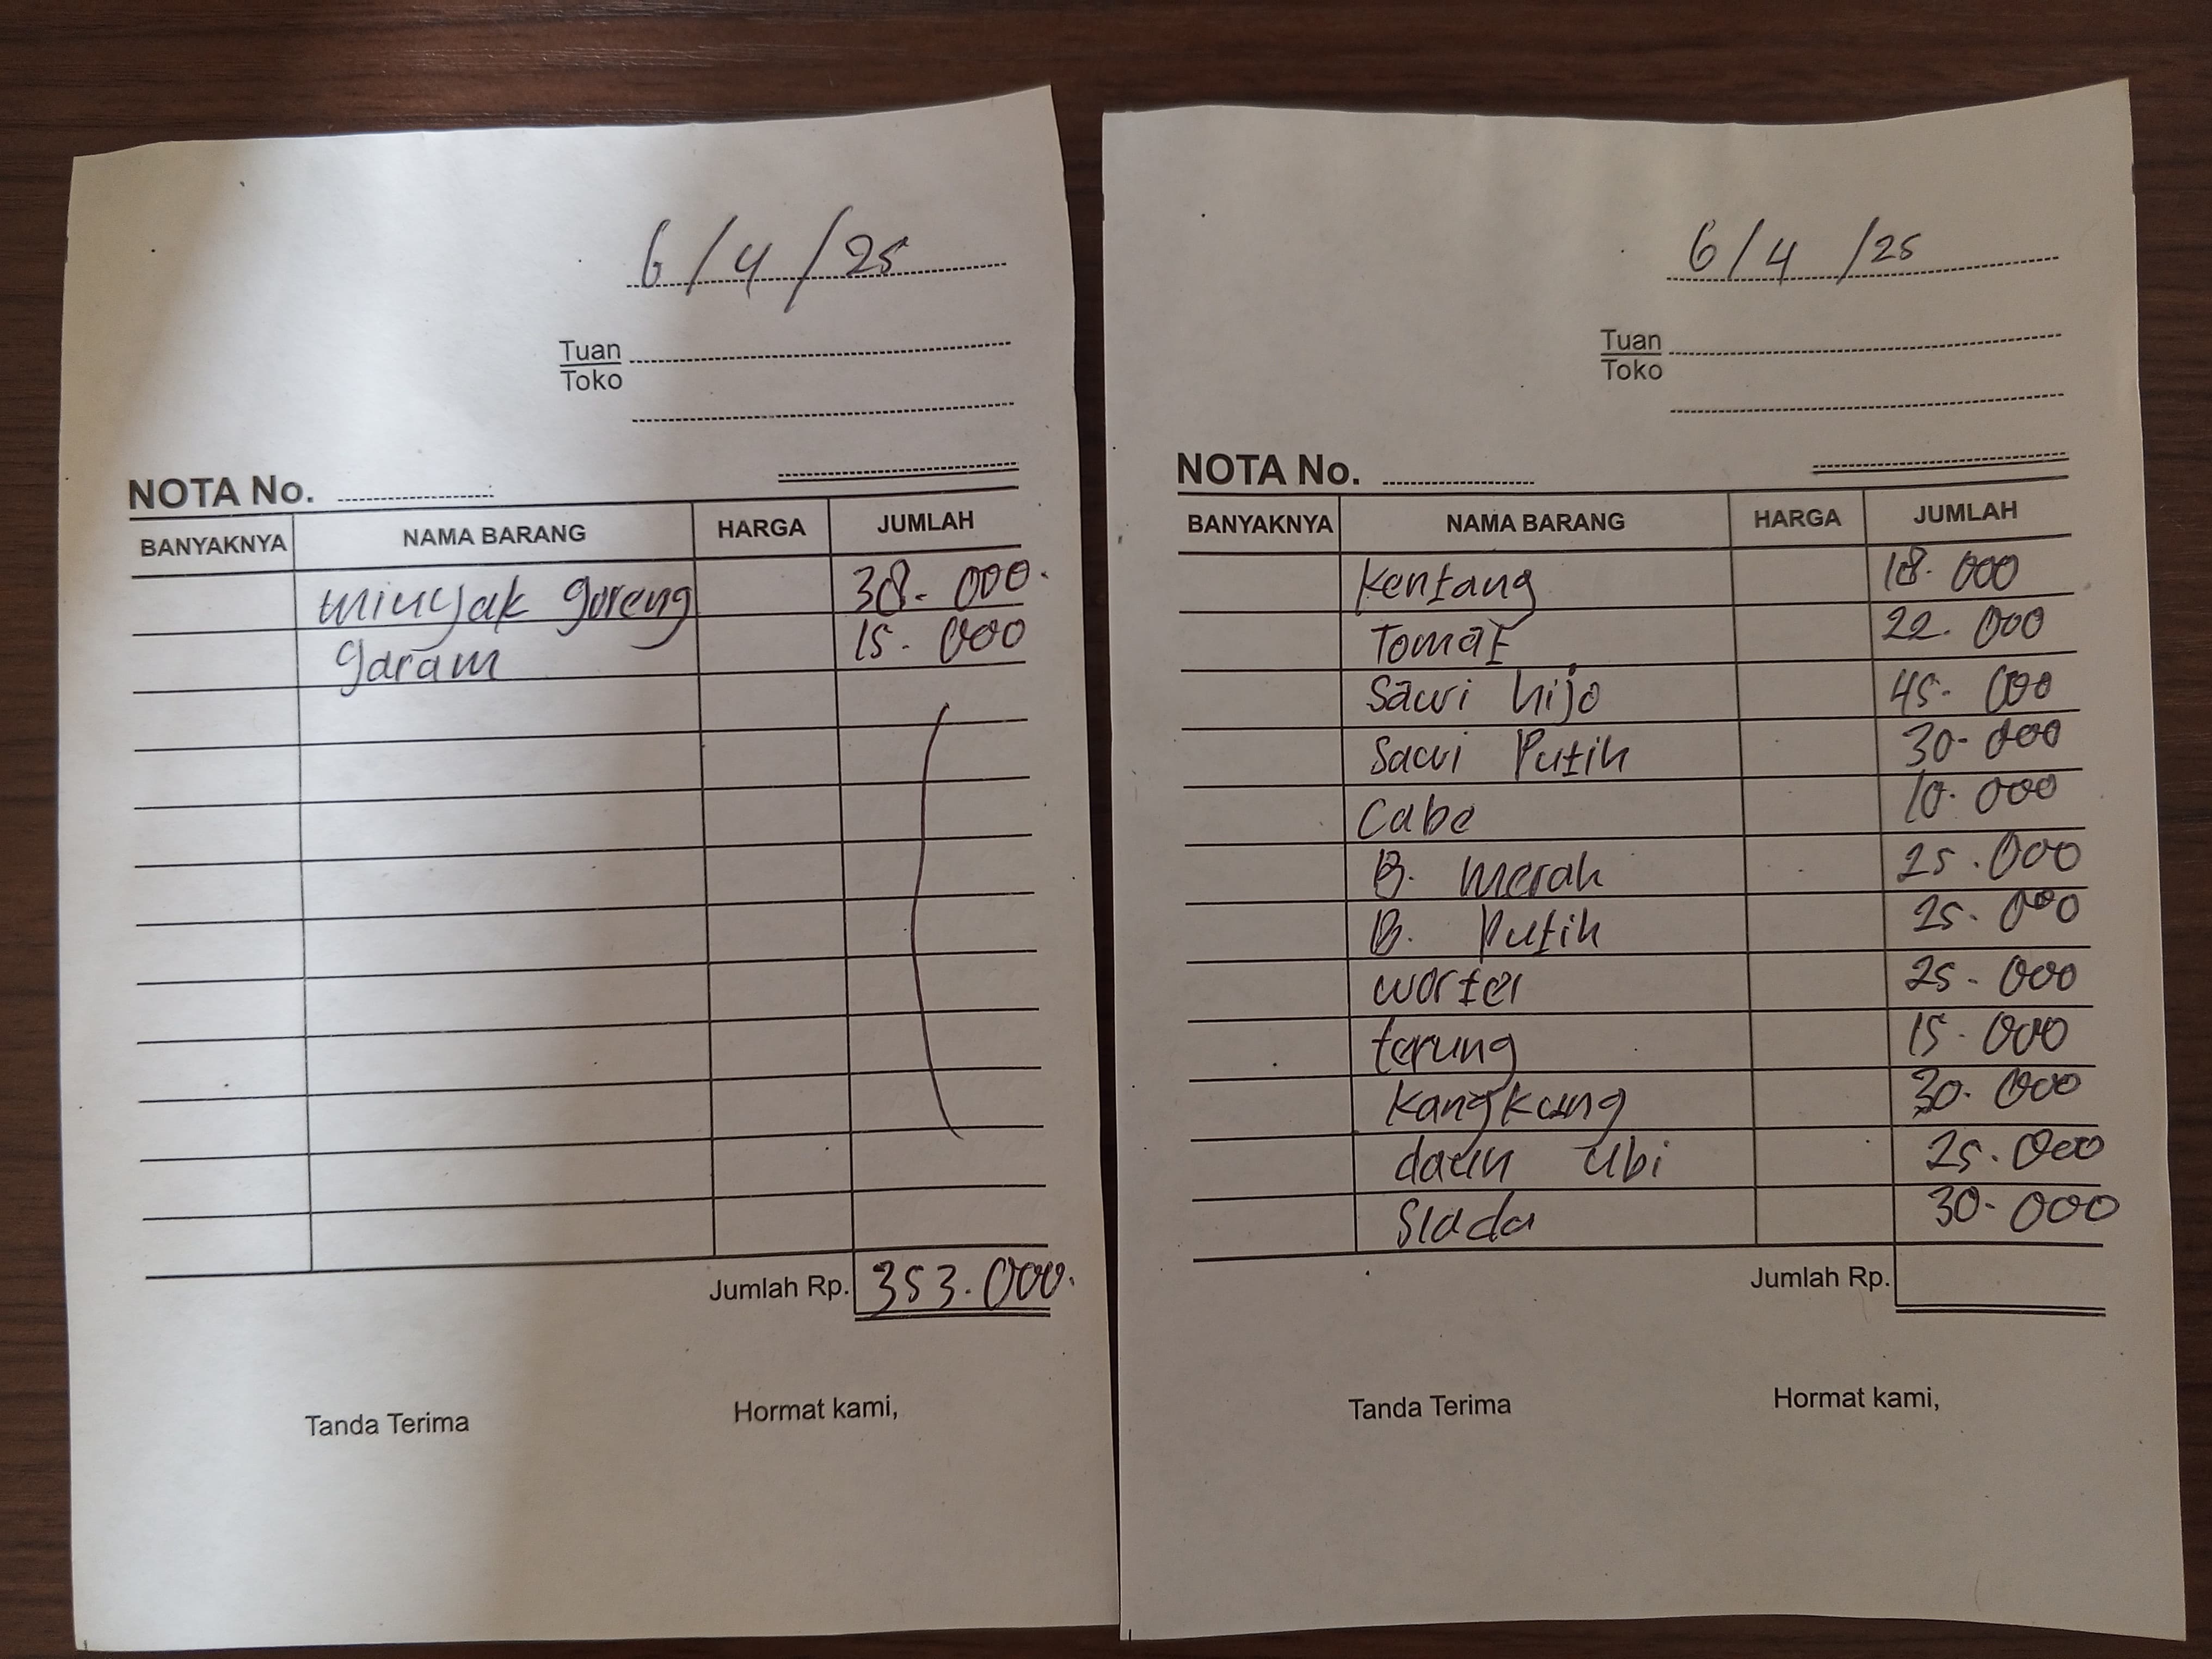 6/4/25
Tuan
Toko
NOTA No.
BANYAKNYA NAMA BARANG HARGA JUMLAH
minyak goreng 38.000.
garam 15.000
Jumlah Rp. 353.000.
Tanda Terima Hormat kami,
6/4/25
Tuan
Toko
NOTA No.
BANYAKNYA NAMA BARANG HARGA JUMLAH
Kentang 18.000
Tomat 22.000
Sawi hijo 45.000
Sawi Putih 30.000
Cabe 10.000
B. merah 25.000
B. Putih 25.000
wortel 25.000
terung 15.000
Kangkung 30.000
daun ubi 25.000
Slada 30.000
Jumlah Rp.
Tanda Terima Hormat kami,